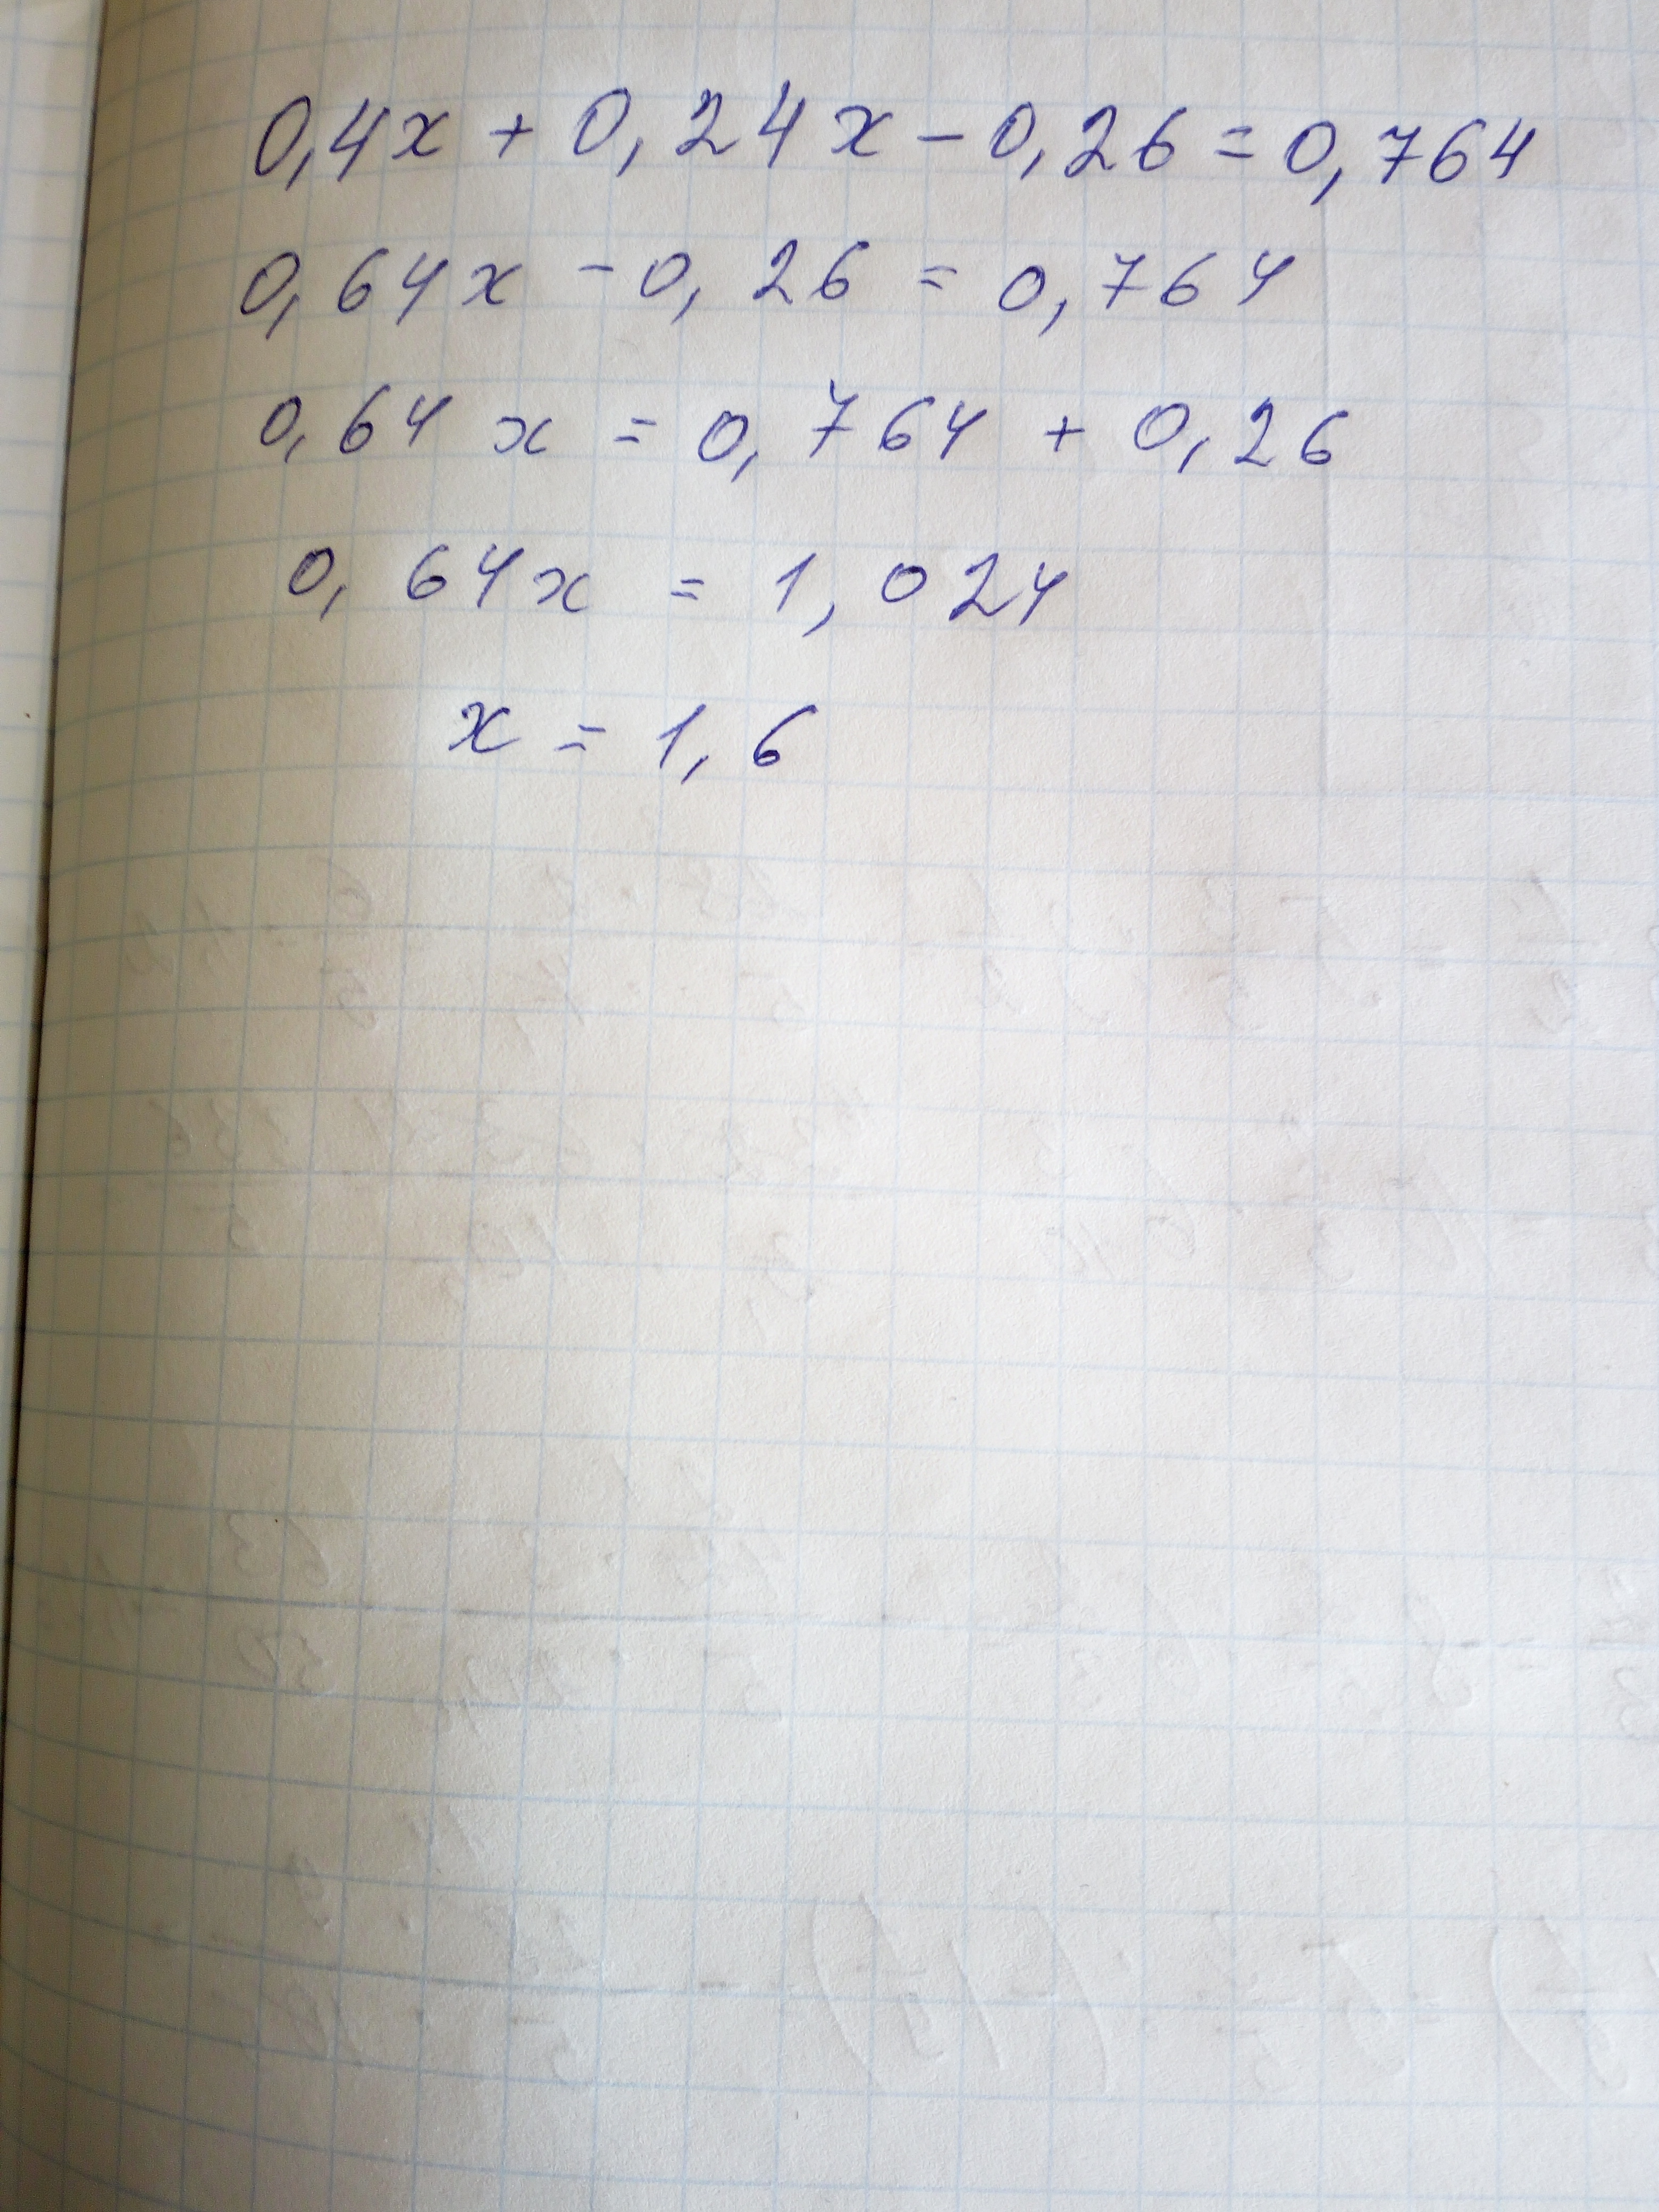 0,4x + 0,24x - 0,26 = 0,764
0,64x - 0,26 = 0,764
0,64x = 0,764 + 0,26
0,64x = 1,024
x = 1,6